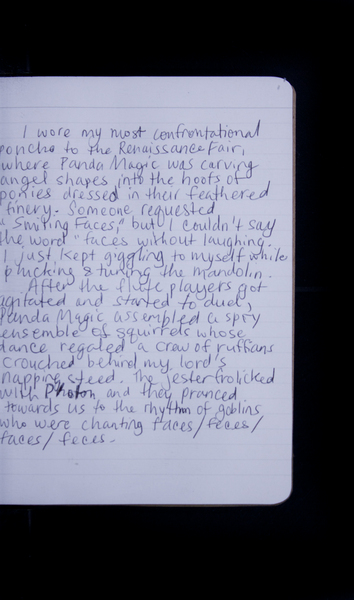 I wore my most confrontational
poncho to the Renaissance Fair,
where Panda Magic was carving
angel shapes into the hoofs of
ponies dressed in their feathered
finery. Someone requested
"Smiling Faces," but I couldn't say
the word "faces without laughing.
I just kept giggling to myself while
plucking & tuning the mandolin.
After the flute players got
agitated and started to duel,
Panda Magic assembled a spry
ensemble of squirrels whose
dance regaled a craw of ruffians
crouched behind my lord's
napping steed. The jester frolicked
with Photon and they pranced
towards us to the rhythm of goblins
who were chanting faces/feces/
faces/feces.